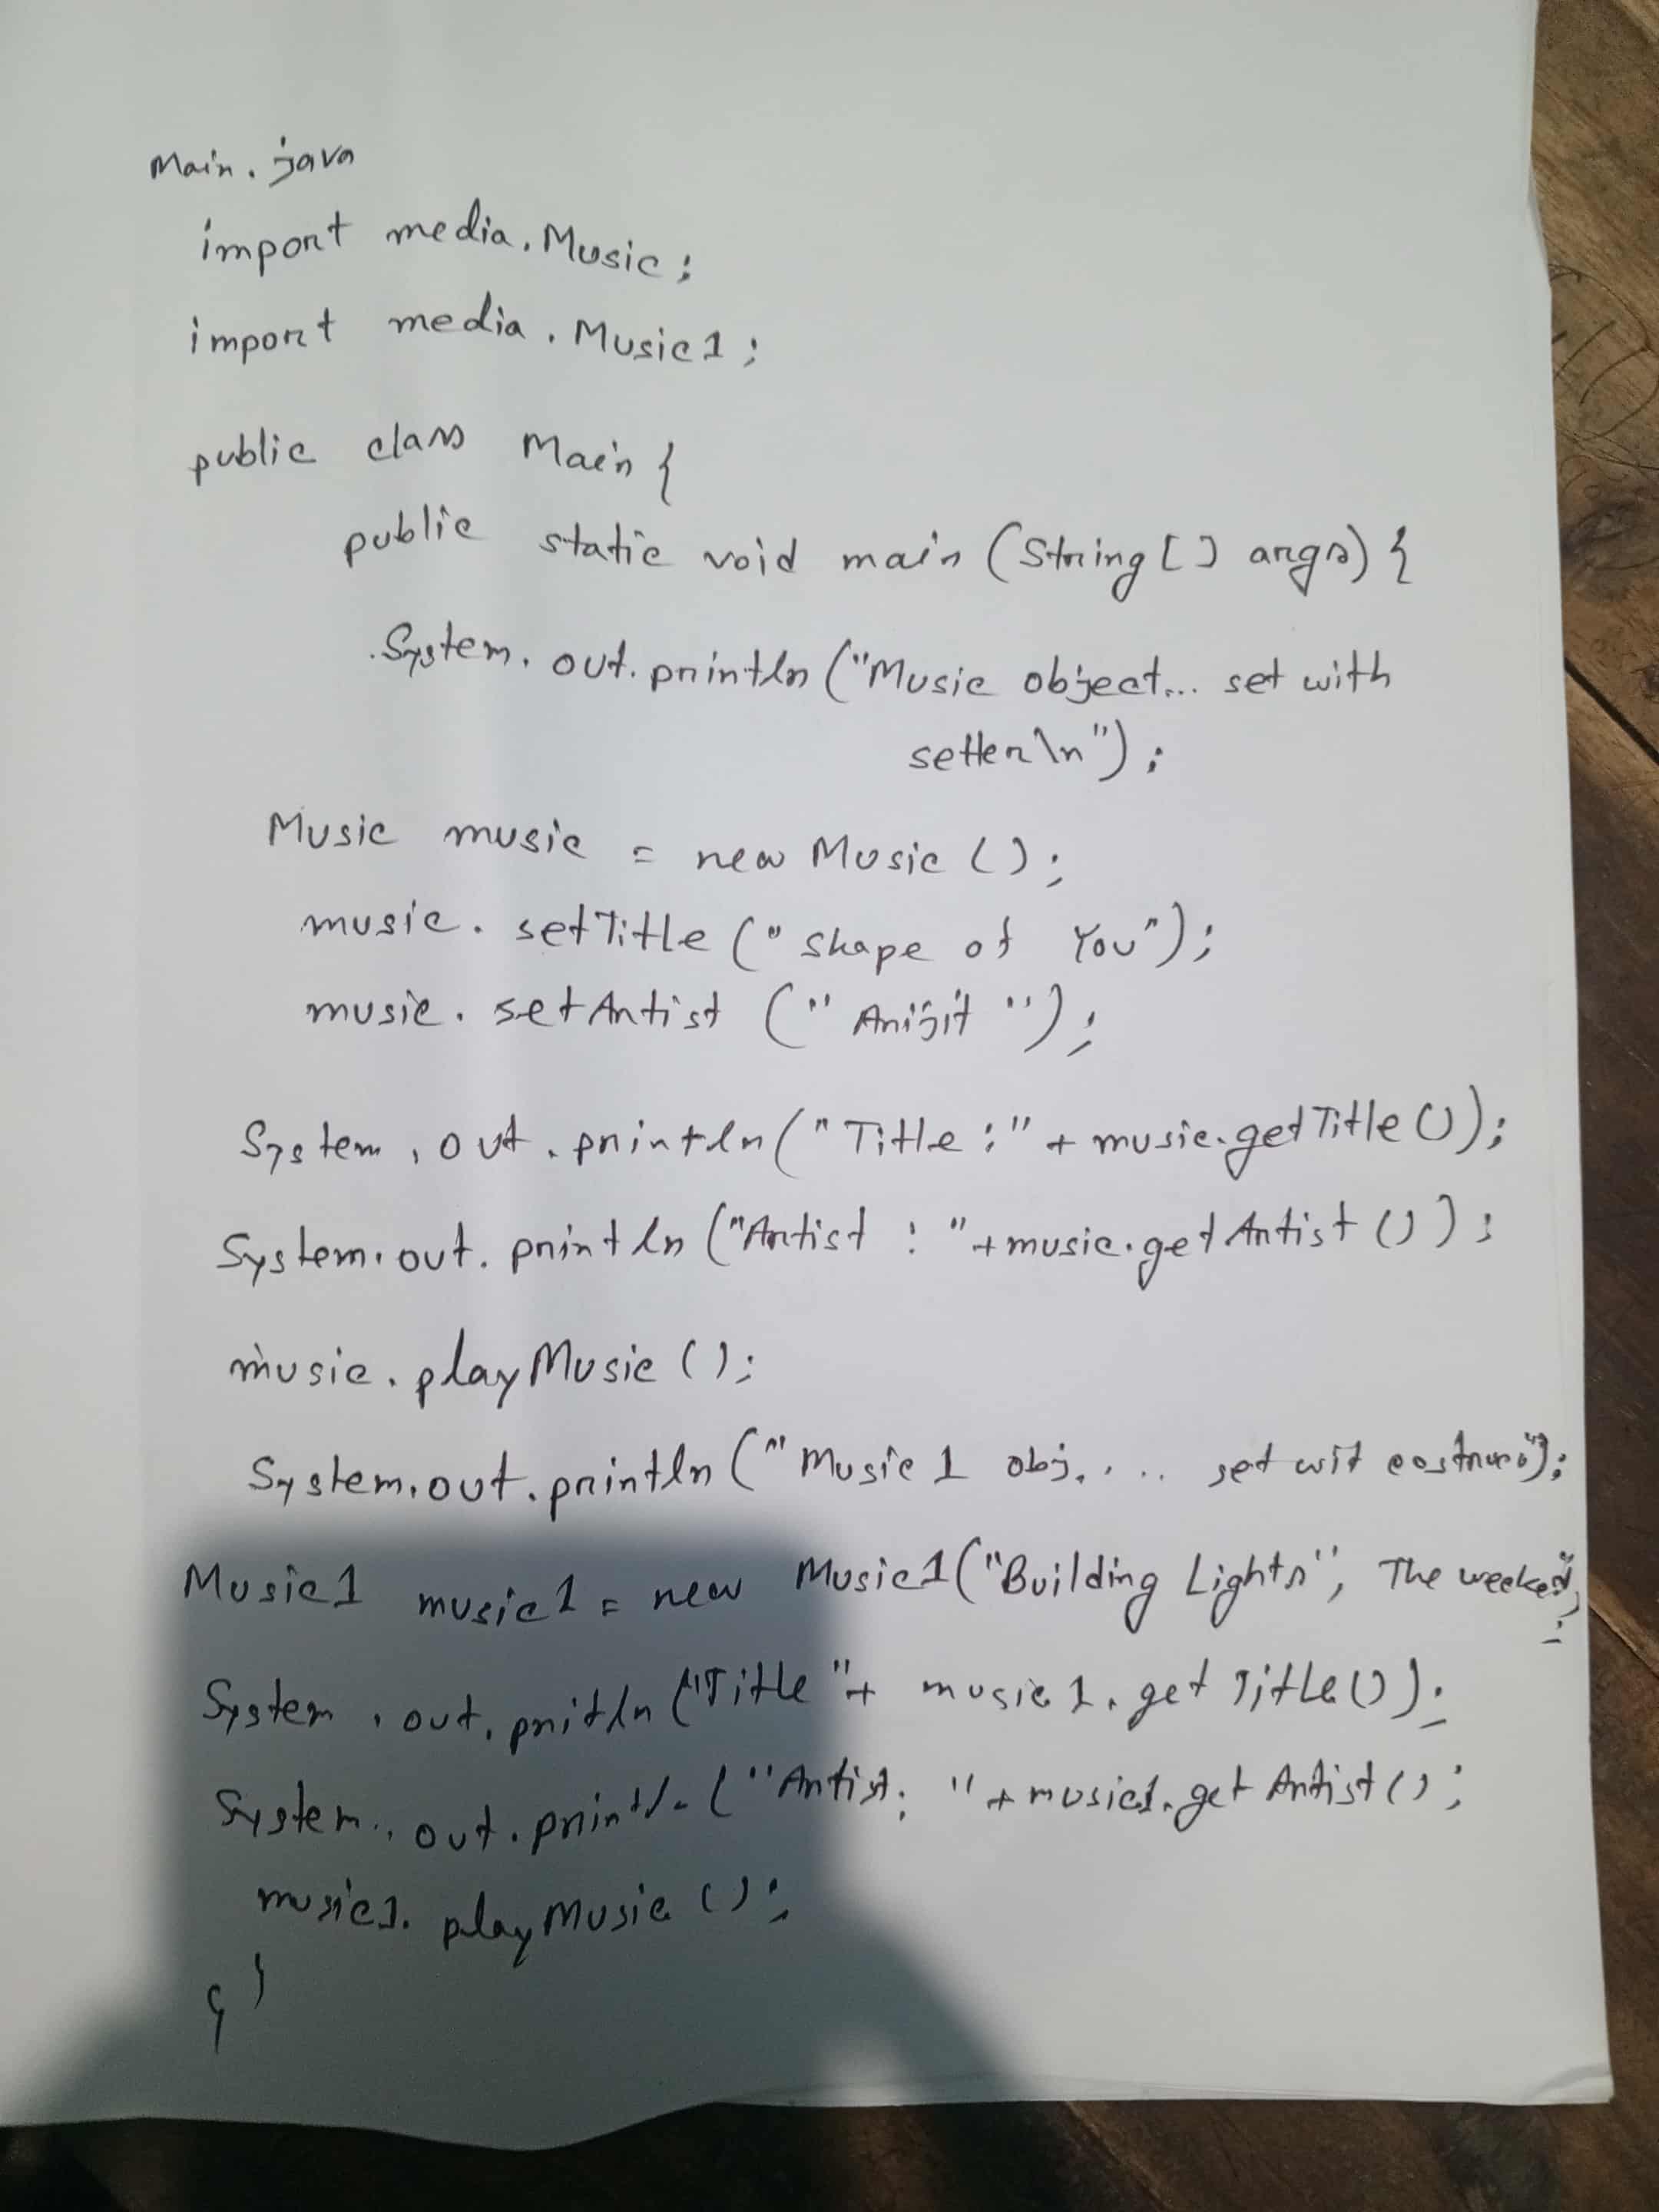 Main.java
import media.Music;
import media.Music1;
public class Main {
public static void main (String [] args) {
System.out.println ("Music object... set with
setter\n");
Music music = new Music ();
music. setTitle ("Shape of You");
music. setArtist ("Arijit");
System.out.println ("Title:" + music.getTitle ());
System.out.println ("Artist : "+music.getArtist ());
music.playMusic ();
System.out.println ("Music 1 obj.... set wit
Music1 music1 = new Music1("Building Lights", The
System.out.pritln ("Title"+ music1.getTitle());
System.out. ("Artist: "+music1.getArtist();
music1.playMusic ();
} }